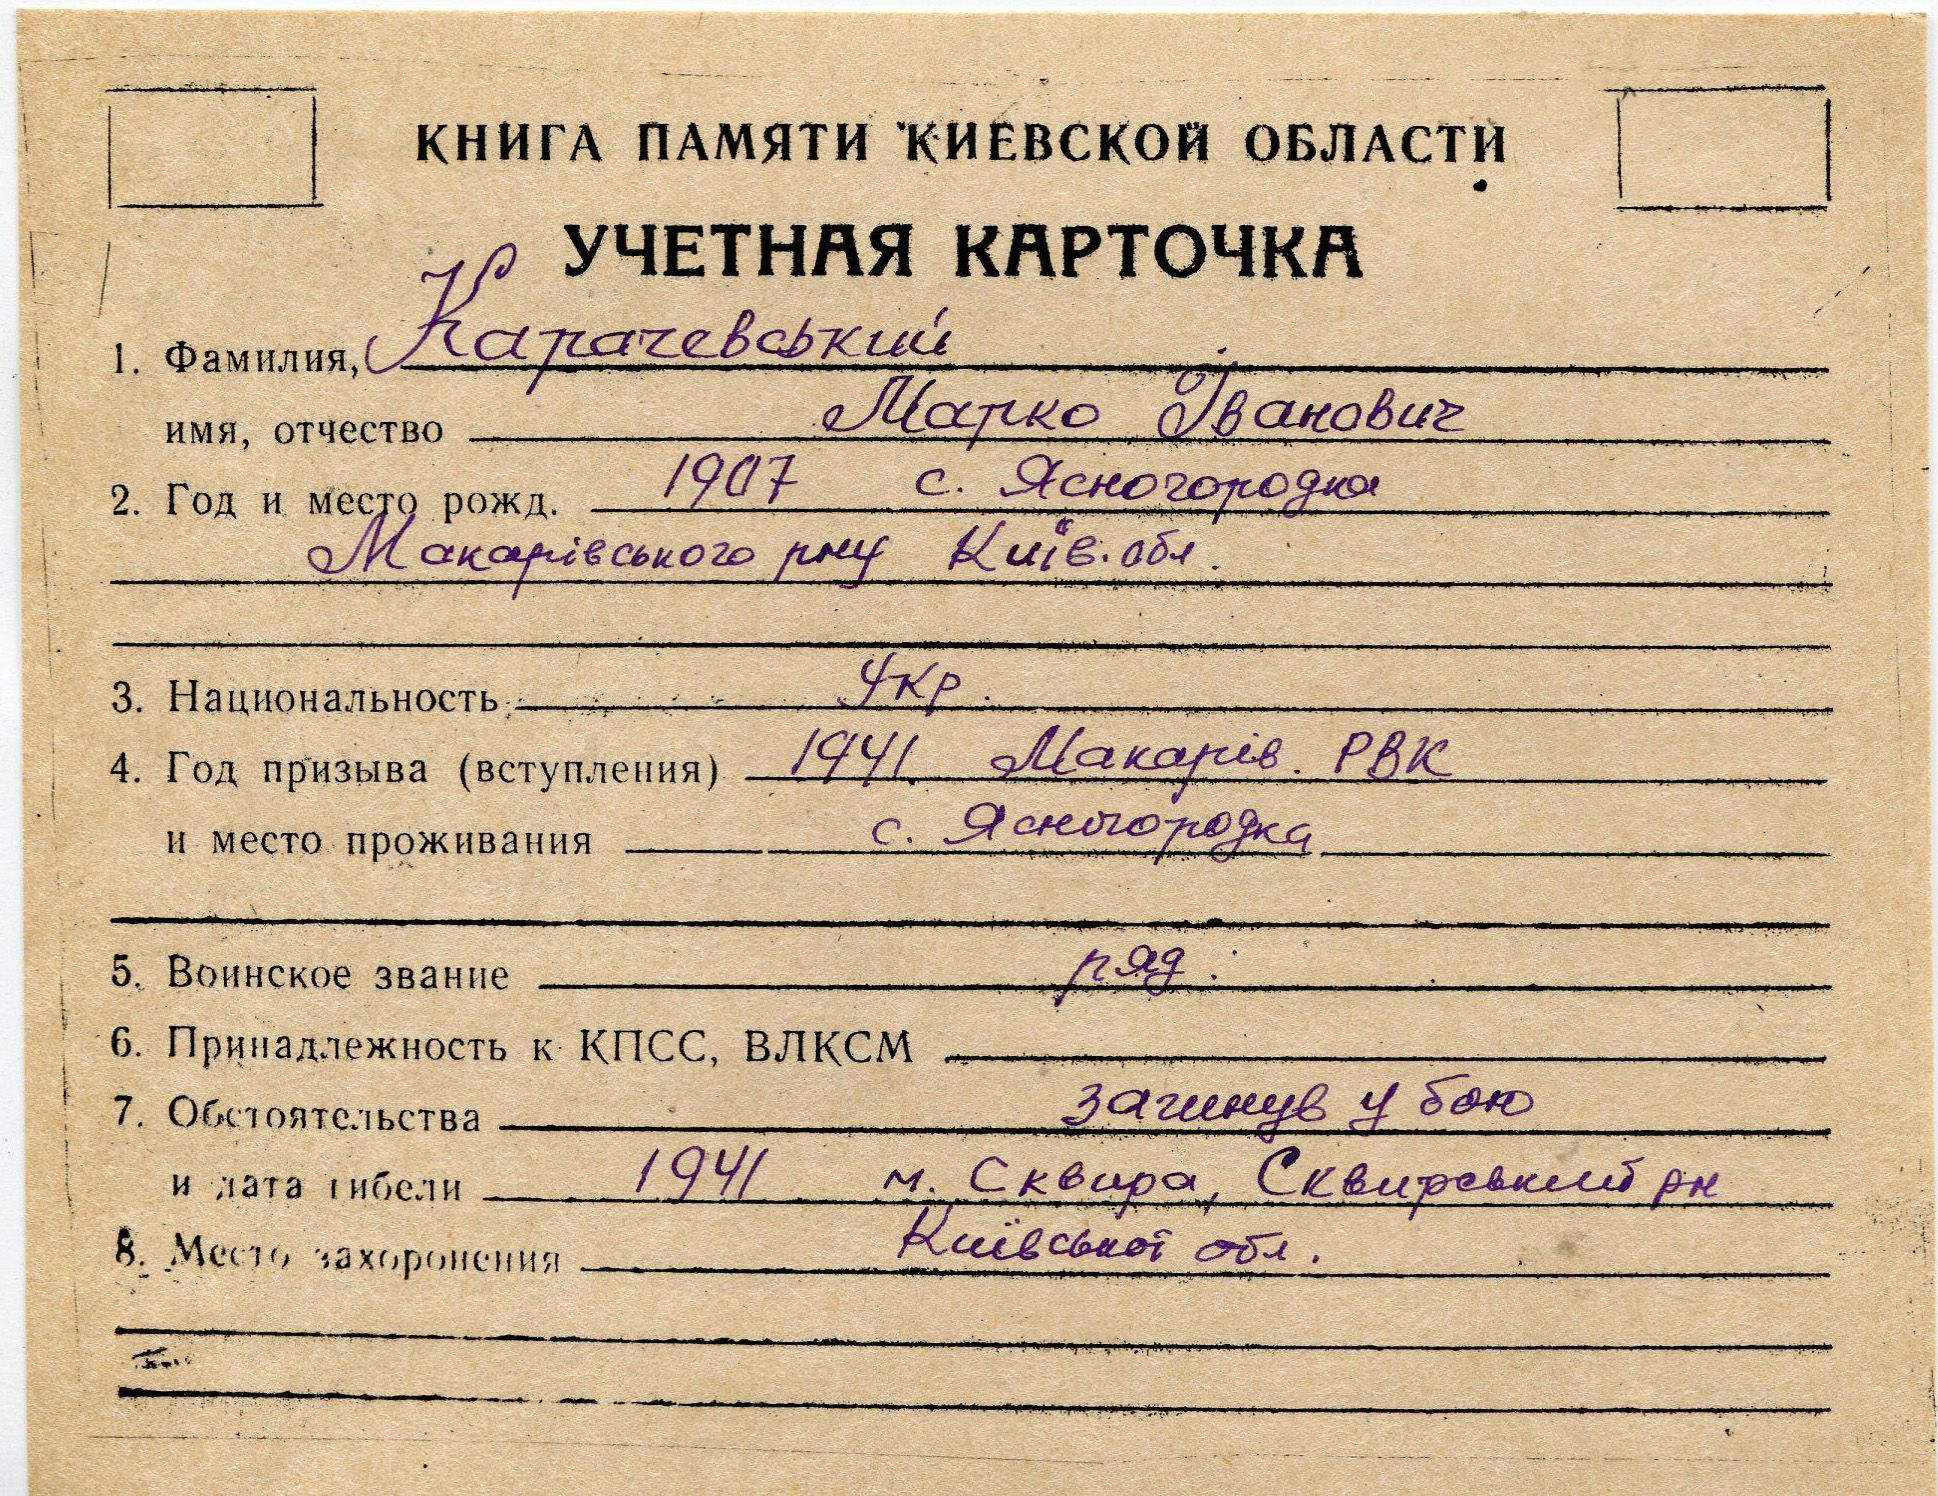 КНИГА ПАМЯТИ КИЕВСКОЙ ОБЛАСТИ
УЧЕТНАЯ КАРТОЧКА
1. Фамилия, Карачевський
имя, отчество Марко Іванович
2. Год и место рожд. 1907 с. Ясногородка
Макарівського рну Київ. обл.
3. Национальность Укр.
4. Год призыва (вступления) 1941 Макарів. РВК
и место проживания с. Ясногородка
5. Воинское звание ряд.
6. Принадлежность к КПСС, ВЛКСМ
7. Обстоятельства загинув у бою
и дата гибели 1941 м. Сквира, Сквирський рн
8. Место захоронения Київської обл.